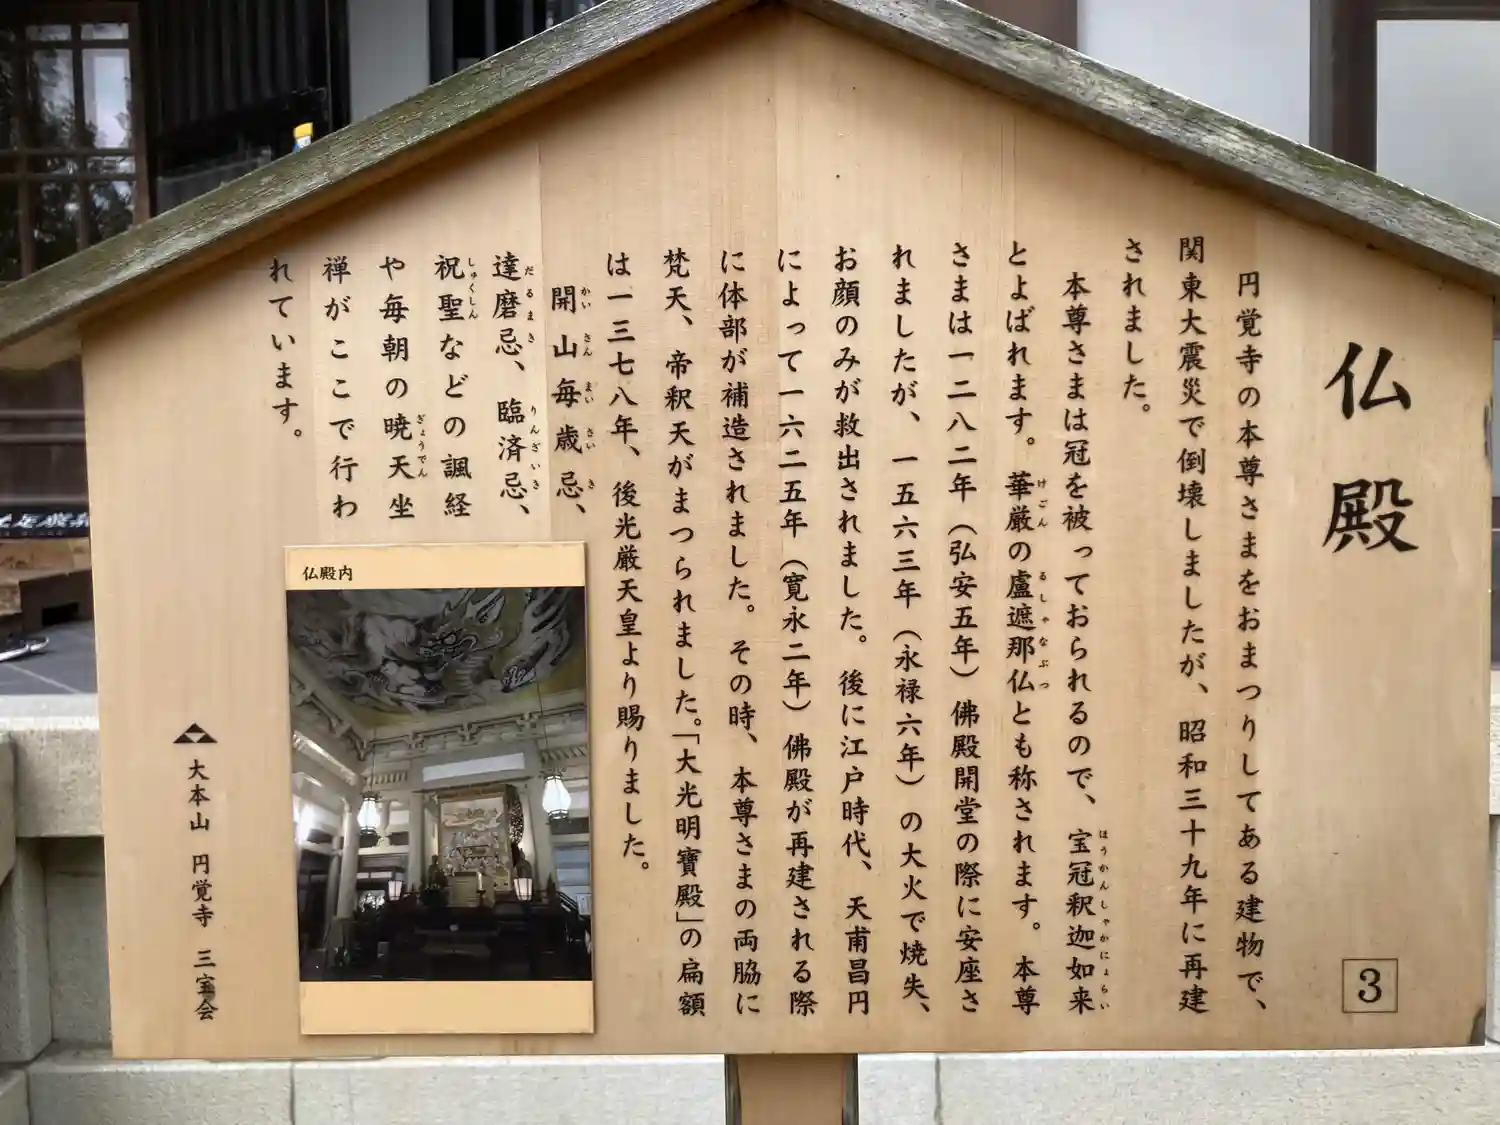 仏殿
3
円覚寺の本尊さまをおまつりしてある建物で、
関東大震災で倒壊しましたが、昭和三十九年に再建
されました。
本尊さまは冠を被っておられるので、宝冠釈迦如来
ほうかんしゃかにょらい
とよばれます。華厳の盧遮那仏とも称されます。本尊
けごん
るしゃなぶつ
さまは一二八二年（弘安五年）佛殿開堂の際に安座さ
れましたが、一五六三年（永禄六年）の大火で焼失、
お顔のみが救出されました。後に江戸時代、天甫昌円
によって一六二五年（寛永二年）佛殿が再建される際
に体部が補造されました。その時、本尊さまの両脇に
梵天、帝釈天がまつられました。「大光明寶殿」の扁額
は一三七八年、後光厳天皇より賜りました。
開山毎歳忌、
かいさんまいさいき
達磨忌、臨済忌、
だるまき
りんざいき
祝聖などの諷経
しゅくしん
や毎朝の暁天坐
ぎょうでん
禅がここで行わ
れています。
仏殿内
大本山 円覚寺 三宝会